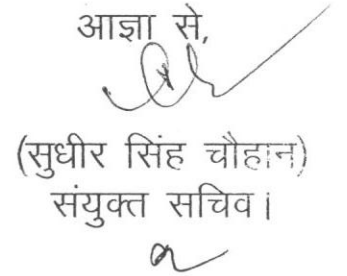 आज्ञा से,
(सुधीर सिंह चौहान)
संयुक्त सचिव।